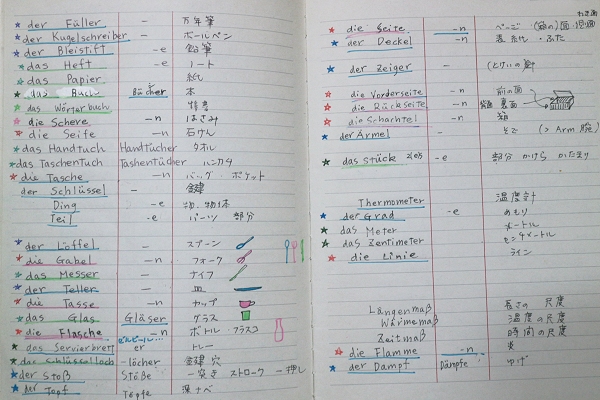 der Füller – 万年筆
der Kugelschreiber – ボールペン
der Bleistift -e 鉛筆
das Heft -e ノート
das Papier 紙
das Buch Bücher 本
das Wörterbuch
die Schere -n はさみ
die Seife -n 石けん
das Handtuch Handtücher タオル
das Taschentuch Taschentücher ハンカチ
die Tasche -n バッグ・ポケット
der Schlüssel – 鍵
Ding -e 物、物体
Teil -e パーツ 部分
der Löffel – スプーン
die Gabel -n フォーク
das Messer – ナイフ
der Teller – 皿
die Tasse -n カップ
das Glas Gläser グラス
die Flasche -n ボトル・フラスコ
das Servierbrett er トレー
das Schlüsselloch -löcher 鍵穴
der Stoß Stöße 一突き ストローク 一押し
der Topf Töpfe 深ナベ
die Seite -n ページ (箱の)面・
der Deckel -n 表紙・ふた
der Zeiger – (とけいの)針
die Vorderseite -n 前の面
die Rückseite -n 裏面
die Schachtel -n 箱
der Ärmel – そで (> Arm 腕)
das Stück -e 部分 かけら かたまり
Thermometer 温度計
der Grad -e めもり
das Meter メートル
das Zentimeter センチメートル
die Linie ライン
Längenmaß 長さの尺度
Wärmemaß 温度の尺度
Zeitmaß 時間の尺度
die Flamme -n 炎
der Dampf Dämpfe ゆげ